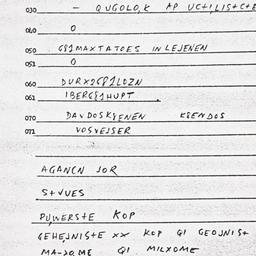 030 - QUGOLO,K AP UC+ILIS+C+E
040 0
050 G81MAXTATOES IN LEJENEN
051 0
060
061 IBERG81HUPT
070 DAVDOSKYENEN KBENDOS
071 VOSVEJSER
AGANCN JOR
S+VUES
PUWERS+E KOP
GEHEJNIS+E XX KOP QI GEOJNIS+
MA-DOME QI MILXOME